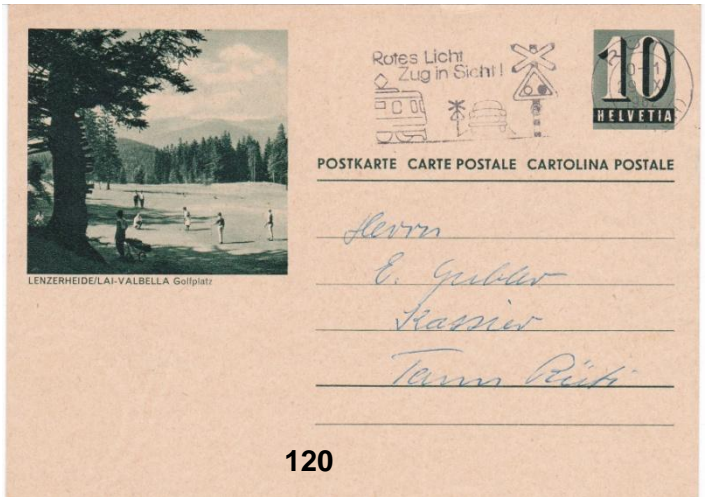 Rotes Licht
Zug in Sicht!
10
HELVETIA
POSTKARTE CARTE POSTALE CARTOLINA POSTALE
LENZERHEIDE/LAI-VALBELLA Golfplatz
Herrn
E. Gubler
Kassier
Tann Rüti
120